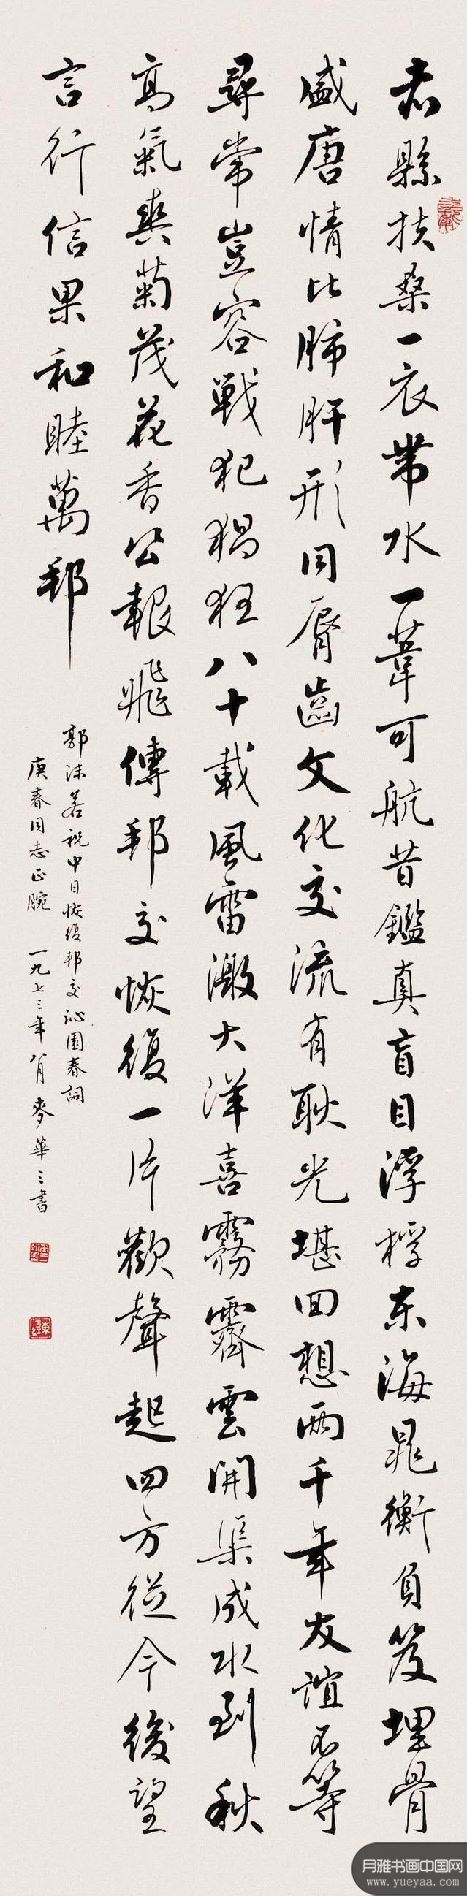 赤縣扶桑一衣帶水一葦可航昔鑑真盲目浮桴東海晁衡負笈埋骨
盛唐情比肺肝形同脣齒文化交流有耿光堪回想兩千年友誼不等
尋常豈容戰犯猖狂八十載風雷激大洋喜霧霽雲開渠成水到秋
高氣爽菊茂花香公報飛傳邦交恢復一片歡聲起四方從今後望
言行信果和睦萬邦
郭沫若祝中日恢復邦交沁園春詞
庚春同志正腕 一九七三年八月麥華三書
月雅书画中国网
www.yueyaa.com